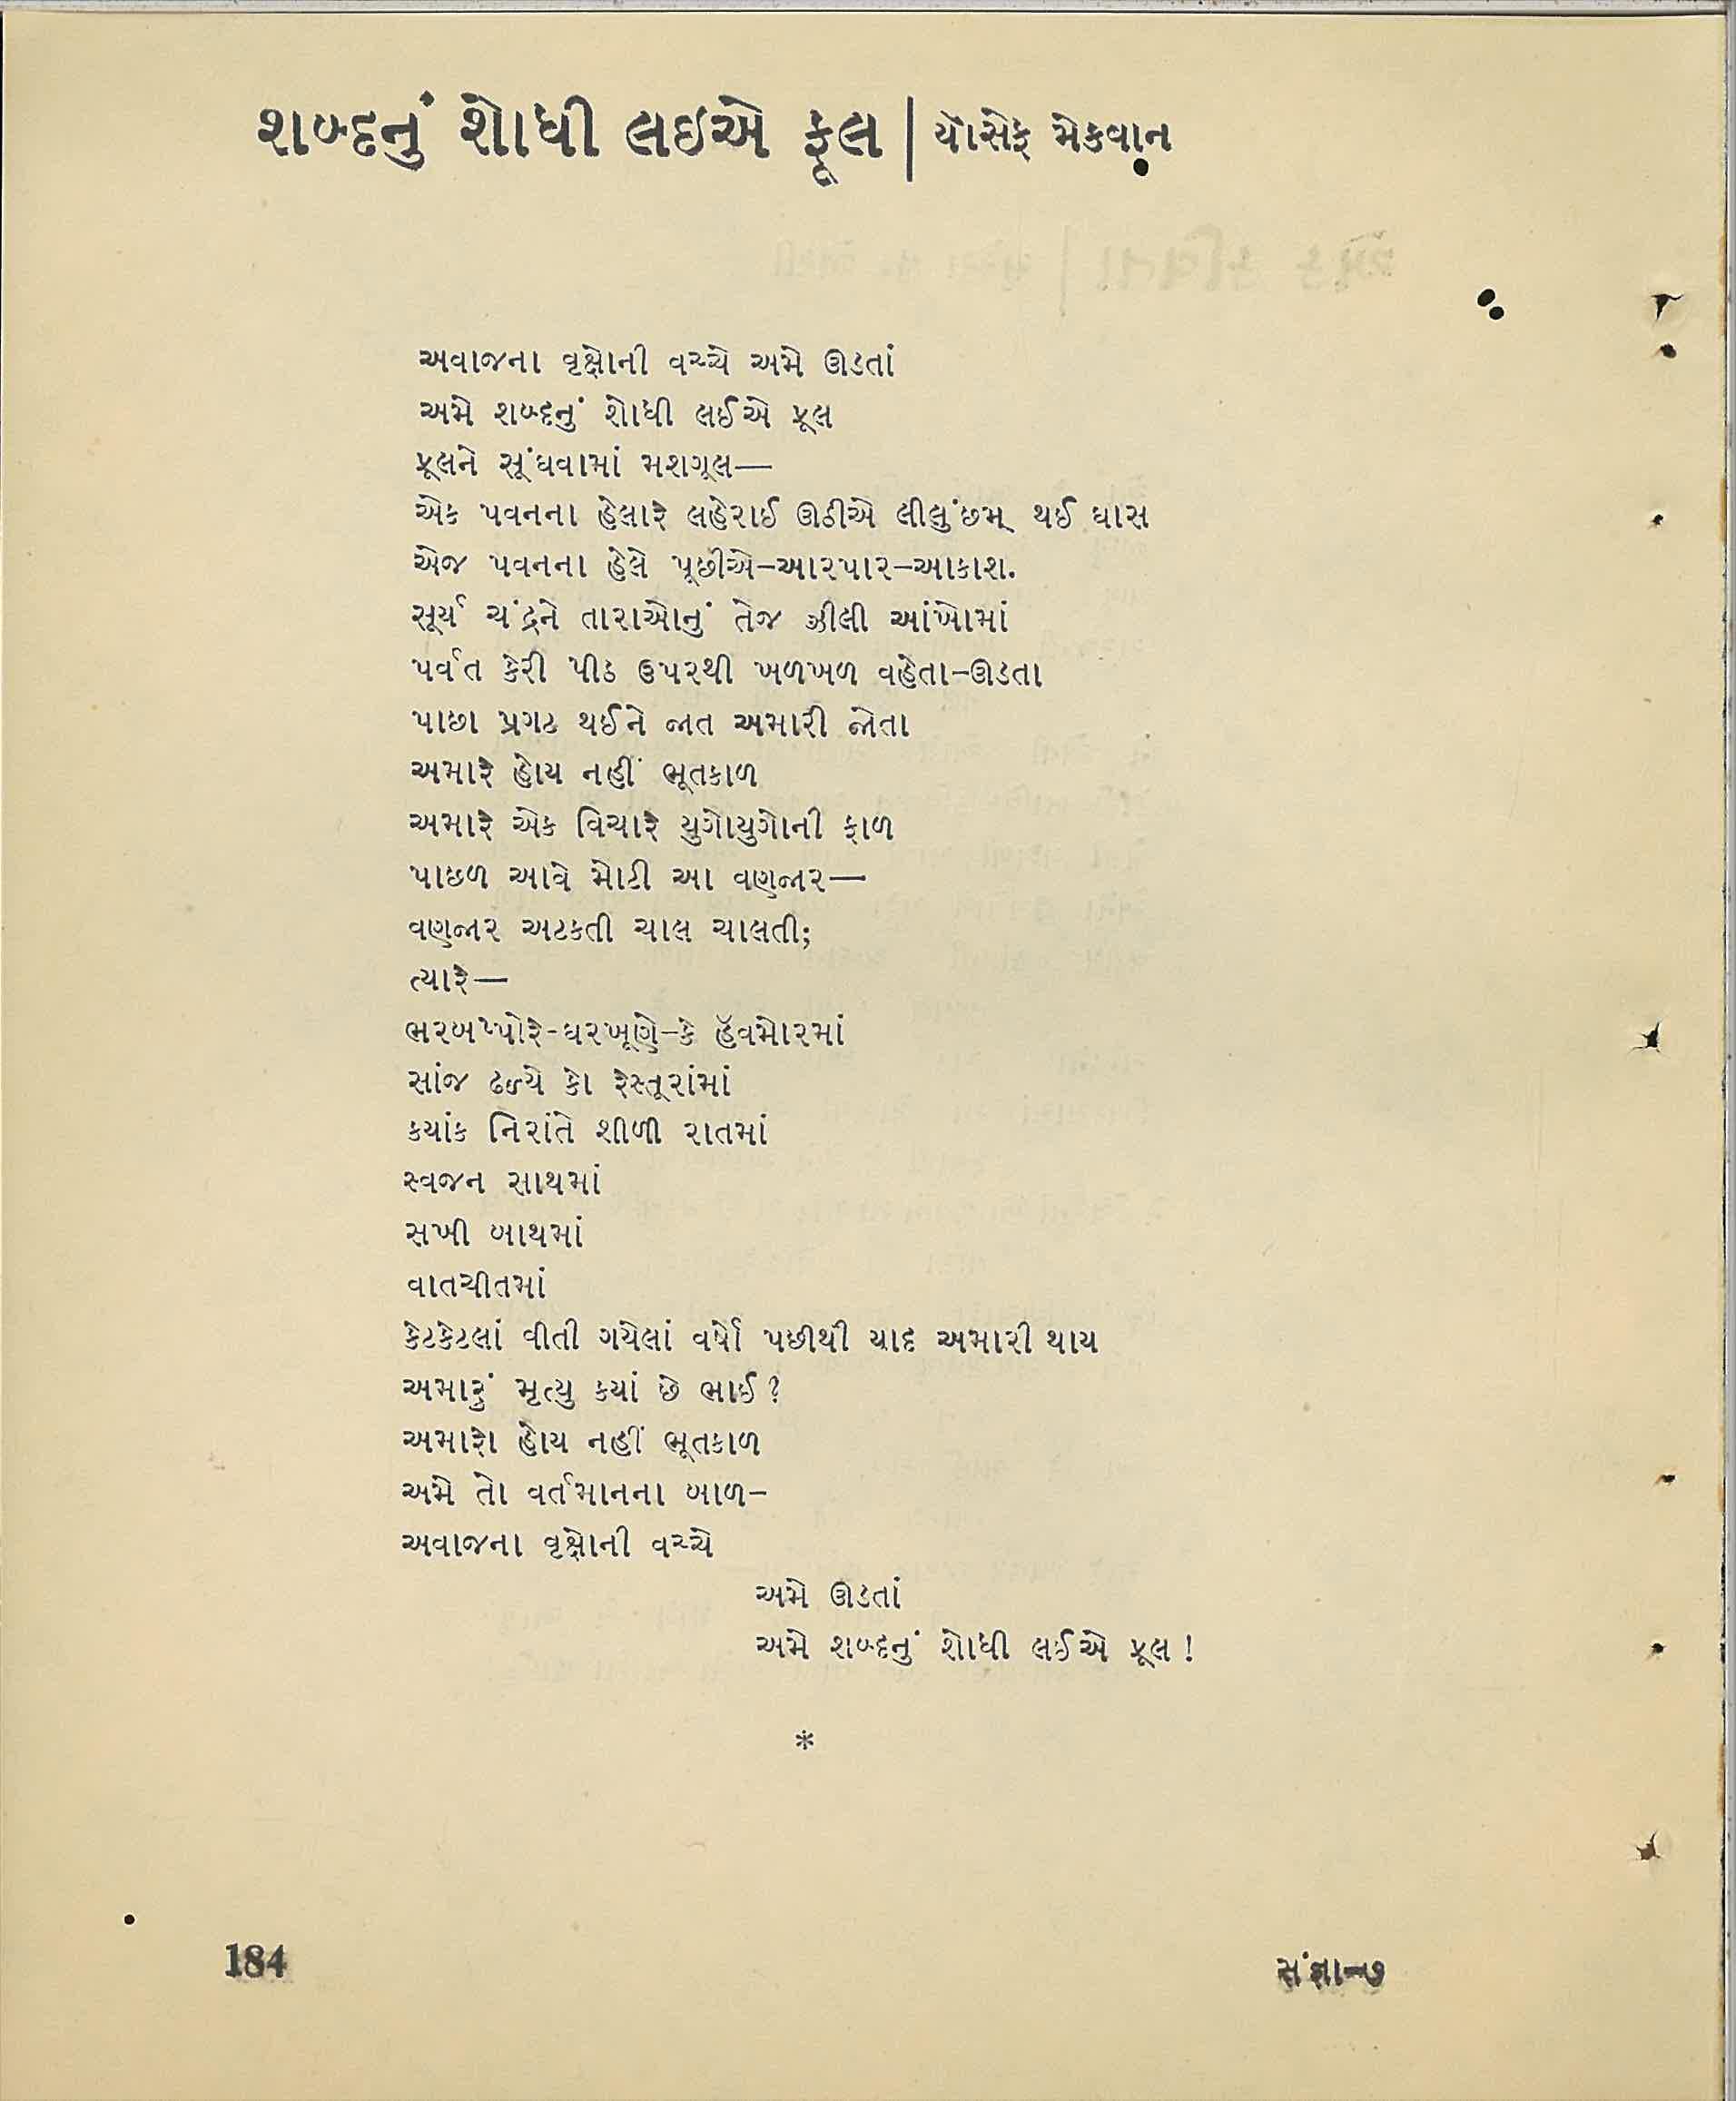 શબ્દનું શોધી લઇએ ફૂલ | યૉસેફ મેકવાન
અવાજના વૃક્ષોની વચ્ચે અમે ઊડતાં
અમે શબ્દનું શોધી લઈએ ફૂલ
ફૂલને સૂંઘવામાં મશગૂલ—
એક પવનના હેલારે લહેરાઈ ઊઠીએ લીલુંછમ્ થઈ ઘાસ
એજ પવનના હેલે પૂછીએ–આરપાર–આકાશ.
સૂર્ય ચંદ્રને તારાઓનું તેજ ઝીલી આંખોમાં
પર્વત કેરી પીઠ ઉપરથી ખળખળ વહેતા–ઊડતા
પાછા પ્રગટ થઈને જાત અમારી જોતા
અમારે હોય નહીં ભૂતકાળ
અમારે એક વિચારે યુગોયુગોની ફાળ
પાછળ આવે મોટી આ વણજાર—
વણજાર અટકતી ચાલ ચાલતી;
ત્યારે—
ભરબપ્પોરે-ઘરખૂણે–કે હૅવમોરમાં
સાંજ ઢળ્યે કો રેસ્તૂરાંમાં
કયાંક નિરાંતે શીળી રાતમાં
સ્વજન સાથમાં
સખી બાથમાં
વાતચીતમાં
કેટકેટલાં વીતી ગયેલાં વર્ષો પછીથી યાદ અમારી થાય
અમારું મૃત્યુ કયાં છે ભાઈ?
અમારો હોય નહીં ભૂતકાળ
અમે તો વર્તમાનના બાળ–
અવાજના વૃક્ષોની વચ્ચે
અમે ઊડતાં
અમે શબ્દનું શોધી લઈએ ફૂલ!
*
184
સંજ્ઞા–૭